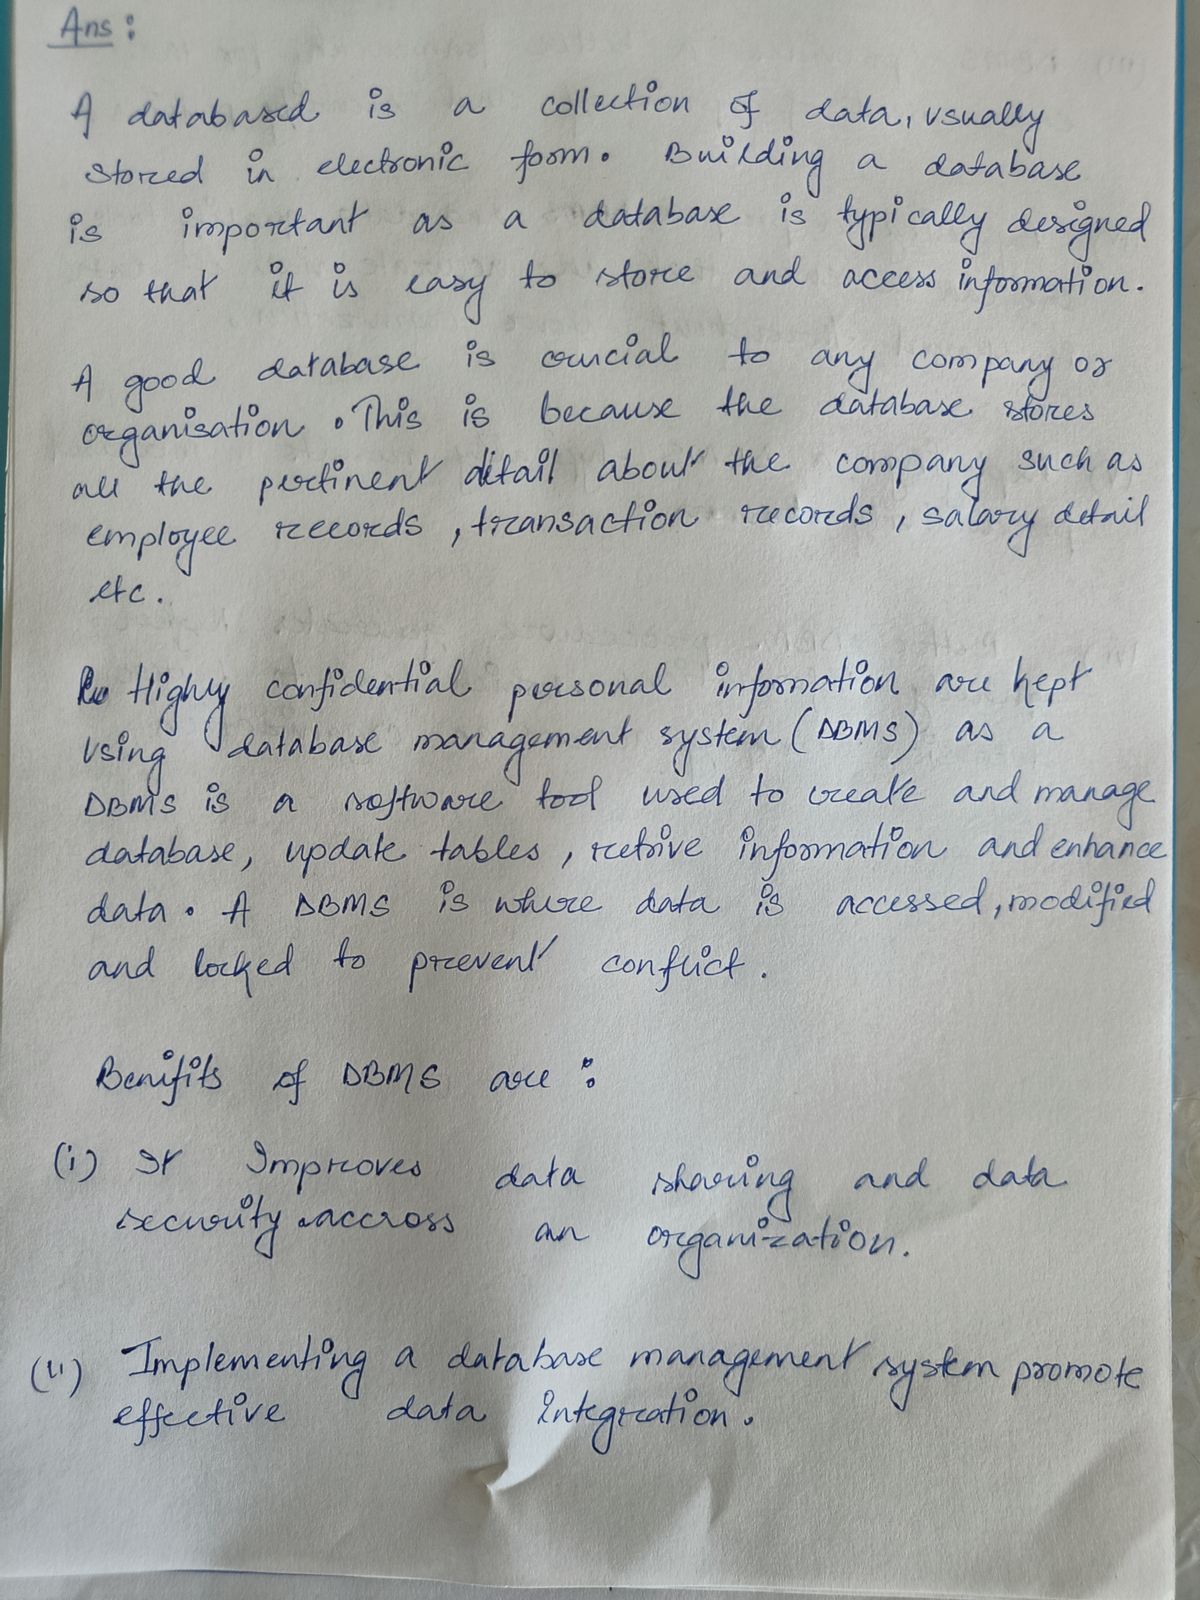 Ans :
A databased is a collection of data, usually
stored in electronic form. Building a database
is important as a database is typically designed
so that it is easy to store and access information.
A good database is crucial to any company or
organisation. This is because the database stores
all the pertinent detail about the company such as
employee records, transaction records, salary detail
etc.
Highly confidential personal information are kept
using database management system (DBMS) as a
DBMS is a software tool used to create and manage
database, update tables, retrive information and enhance
data. A DBMS is where data is accessed, modified
and locked to prevent conflict.
Benifits of DBMS are :
(i) It Improves data sharing and data
security accross an organization.
(ii) Implementing a database management system promote
effective data integration.